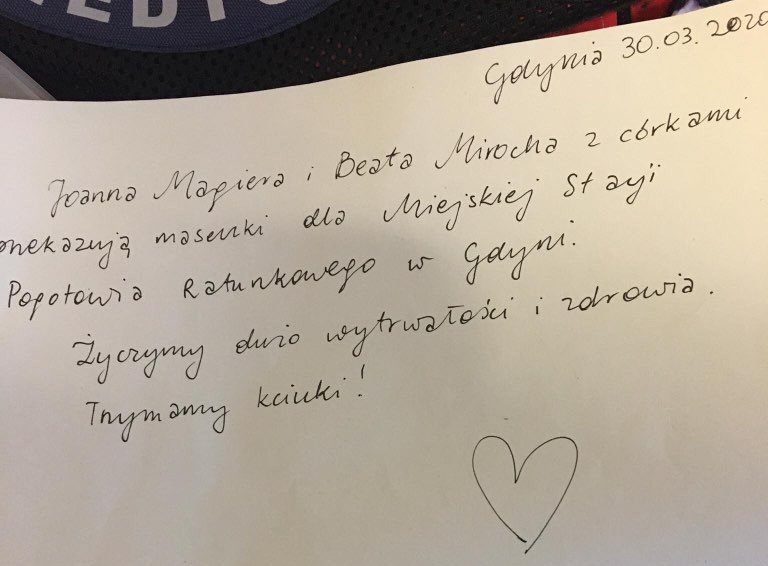 Gdynia 30.03.2020
Joanna Magiera i Beata Mirocha z córkami
przekazują maseczki dla Miejskiej Stacji
Pogotowia Ratunkowego w Gdyni.
Życzymy dużo wytrwałości i zdrowia.
Trzymamy kciuki!